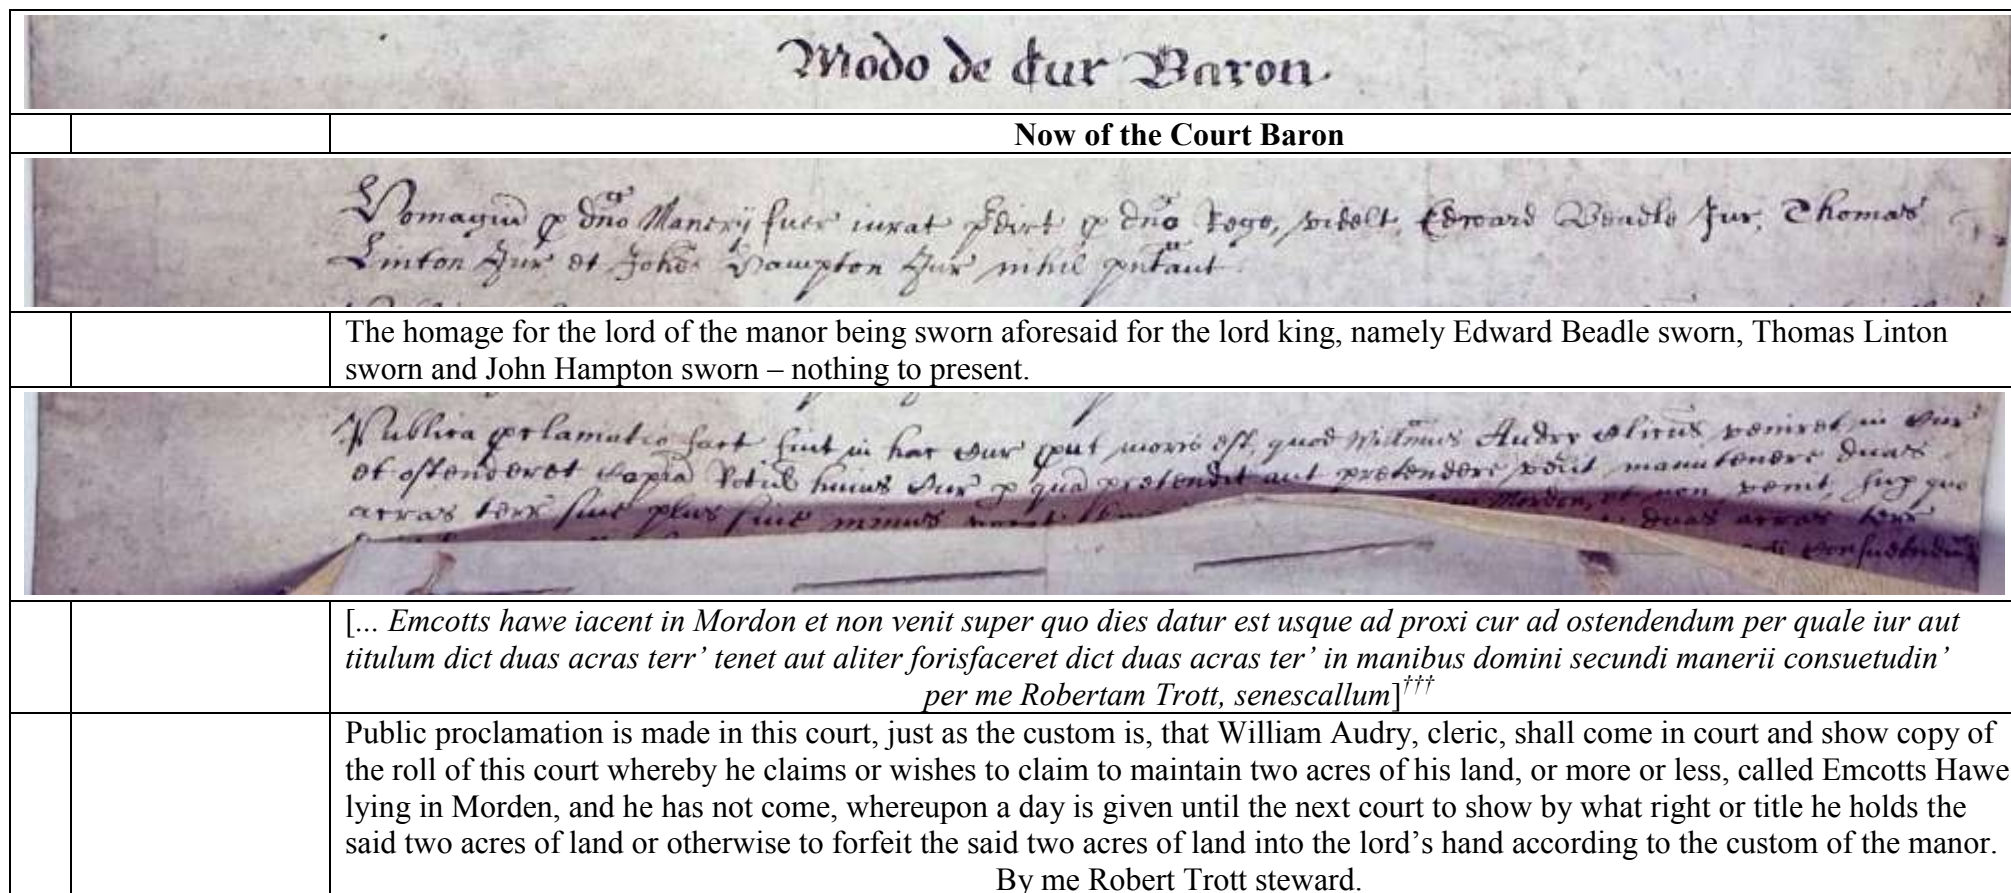 Modo de Cur Baron
Now of the Court Baron
Homagiu p dno Manerij fuer iurat pdict p dno Rege, videlt, Edward Beadle Jur, Thomas
Linton Jur et Johes Hampton Jur nihil pntant
The homage for the lord of the manor being sworn aforesaid for the lord king, namely Edward Beadle sworn, Thomas Linton
sworn and John Hampton sworn – nothing to present.
Publica proclamatio fact fuit in hac Cur put moris est, quod Willmus Audry Clicus veniret in Cur
et ostenderet Copia Rotul huius Cur p qua pretendit aut pretendere voluit manutenere duas
acras terr sive plus sive minus vocat Morden, et non venit, sup quo
duas acras terr
consuetudin
[... Emcotts hawe iacent in Mordon et non venit super quo dies datur est usque ad proxi cur ad ostendendum per quale iur aut
titulum dict duas acras terr’ tenet aut aliter forisfaceret dict duas acras ter’ in manibus domini secundi manerii consuetudin’
per me Robertam Trott, senescallum]†††
Public proclamation is made in this court, just as the custom is, that William Audry, cleric, shall come in court and show copy of
the roll of this court whereby he claims or wishes to claim to maintain two acres of his land, or more or less, called Emcotts Hawe
lying in Morden, and he has not come, whereupon a day is given until the next court to show by what right or title he holds the
said two acres of land or otherwise to forfeit the said two acres of land into the lord’s hand according to the custom of the manor.
By me Robert Trott steward.